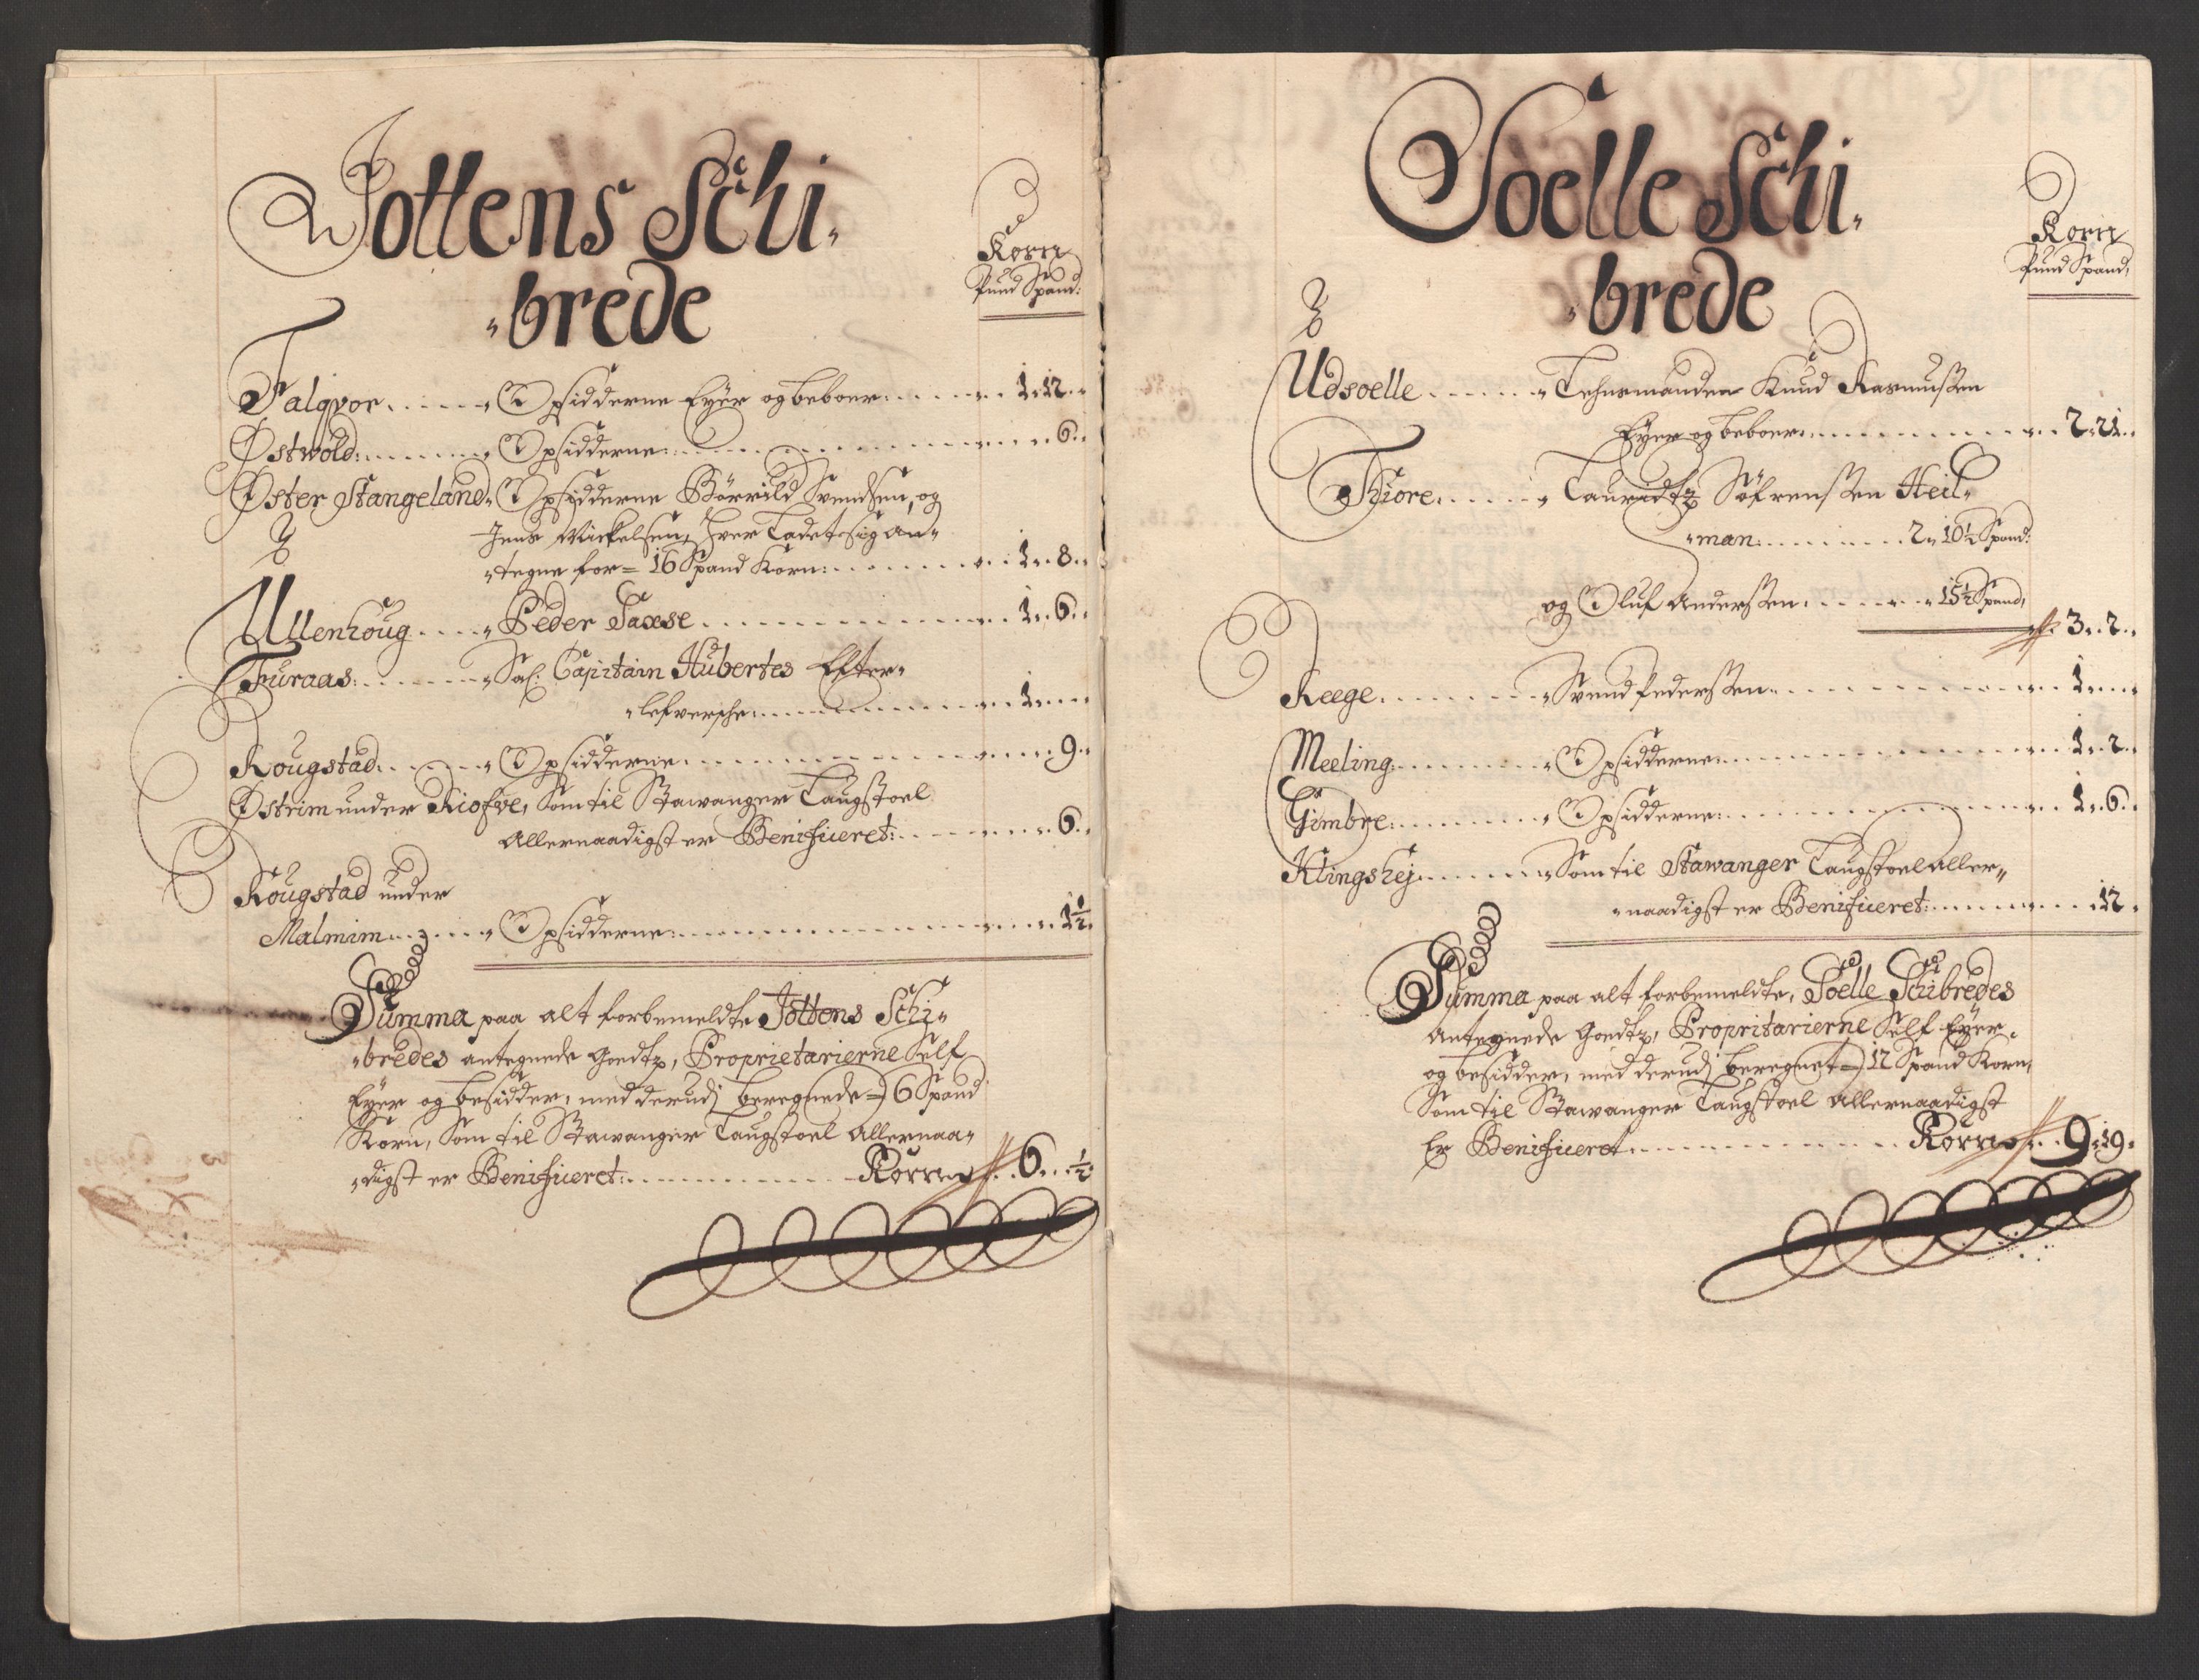 Jottens Schi„
„brede
Korn
Pund Spand:
Falgvor. . . . . „ Opsidderne Eyer og beboer . . . . . . 1„12„
Østwold: . . . . . „ Opsidderne: . . . . . . . . . . 6„
Øster Stangeland„ Opsidderne Börrild Svendsen, og
Jens Mickelsen, hver ladet sig an„
„tegne for = 16 Spand Korn: . . . . . . . . 1„8„
Ullenhoug . . . . „ Peder Saxse . . . . . . . . . . 1„6„
Furaas: . . . . . . „ Sal: Capitain Hubertes Efter„
„lefversche: . . . . . . . . . . 1„„
Rougstad . . . . . „ Opsidderne . . . . . . . . . . 9„
Østrim under Kiofve, Som til Stawanger Laugstoel
Allernaadigst er Benificeret: . . . . . . 6„
Rougstad under
Malmim . . . . . „ Opsidderne: . . . . . . . . . . 1½„
Summa paa alt forbemeldte Jottens Schi„
„bredes antegnede Goedtz, Proprietarierne Self
Eyer og besidder, med derudj beregnede = 6 Spand
Korn, Som til Stawanger Laugstoel Allernaa„
„digst er Benificeret: . . . . . . . . Korn . . 6„ ½
Soelle Schi„
„brede
Korn
Pund Spand,
Udsoelle . . . . . . „ Lehnsmanden Knud Rasmussen
Eyer og beboer: . . . . . . . . . . 2„21„
Thiore. . . . . . „ Lauridtz Söfrenssen Heil„
„man: . . . . . . . 2„10½ Spand:
og Oluf Anderssen: . . . . . „ 15½ Spand,
3„2„
Reege . . . . . . . „ Svend Pederssen . . . . . . . . . . 1„„
Meeling: . . . . . . . „ Opsidderne: . . . . . . . . . . 1„2„
Gimbre: . . . . . . . „ Opsidderne: . . . . . . . . . . 1„6„
Klingshej . . . . . . „ Som til Stawanger Laugstoel aller„
„naadigst er Benificeret: . . . . . . . . 12„
Summa paa alt forbemeldte, Soelle Schibredes
Antegnede Goedtz, Propritarierne Self Eyer„
og besidder, med derudj beregnet = 12 Spand Korn,
Som til Stawanger Laugstoel Allernaadigst
Er Benificeret . . . . . . . . . . Korn . . 9„19„